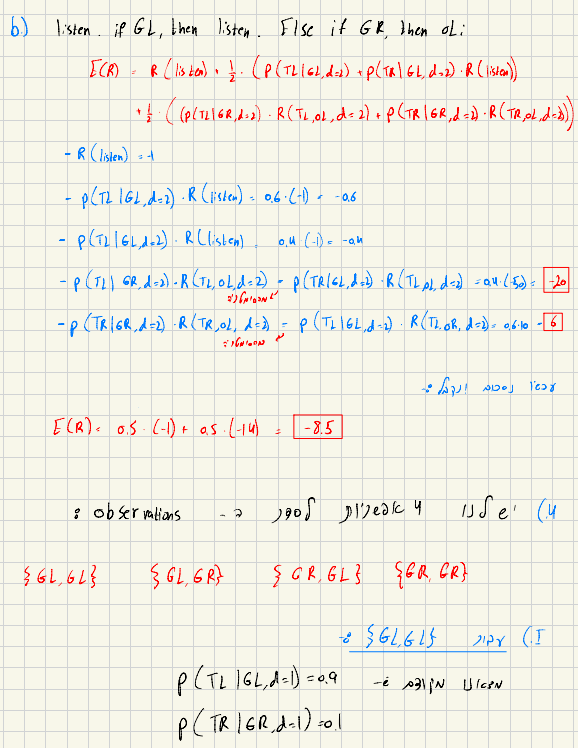 b.) listen. if GL, then listen. Else if GR, then OL:
E(R) = R(listen) + 1/2 · (P(TL|GL,d=2) + P(TR|GL,d=2) · R(listen))
+ 1/2 · ((P(TL|GR,d=2) · R(TL,OL,d=2) + P(TR|GR,d=2) · R(TR,OL,d=2))
- R(listen) = -1
- P(TL|GL,d=2) · R(listen) = 0.6 · (-1) = -0.6
- P(TL|GL,d=2) · R(listen) = 0.4 · (-1) = -0.4
- P(TL|GR,d=2) · R(TL,OL,d=2) = P(TR|GL,d=2) · R(TL,OL,d=2) = 0.4 · (-50) = -20
- P(TR|GR,d=2) · R(TR,OL,d=2) = P(TL|GL,d=2) · R(TL,OR,d=2) = 0.6·10 = 6
עכשיו נסכום ונקבל :-
E(R) = 0.5 · (-1) + 0.5 · (-14) = -8.5
4) יש לנו 4 אפשרויות לסדר ה - observations :
{GL,GL} {GL,GR} {GR,GL} {GR,GR}
I.) עבור {GL,GL} :-
מצאנו מקודם :-
P(TL|GL,d=1) = 0.9
P(TR|GR,d=1) = 0.1